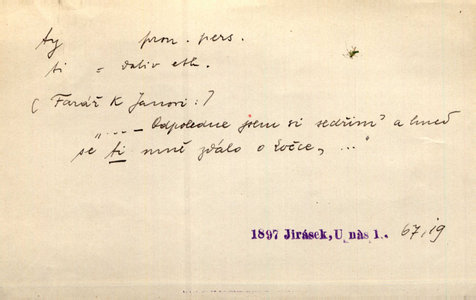 ty pron. pers.
ti = dativ eth.
(Farář k Janovi:)
„... – Odpoledne jsem si sedřiml a hned
se ti mně zdálo o Ločce, ..."
1897 Jirásek, U nás 1. 67, 19